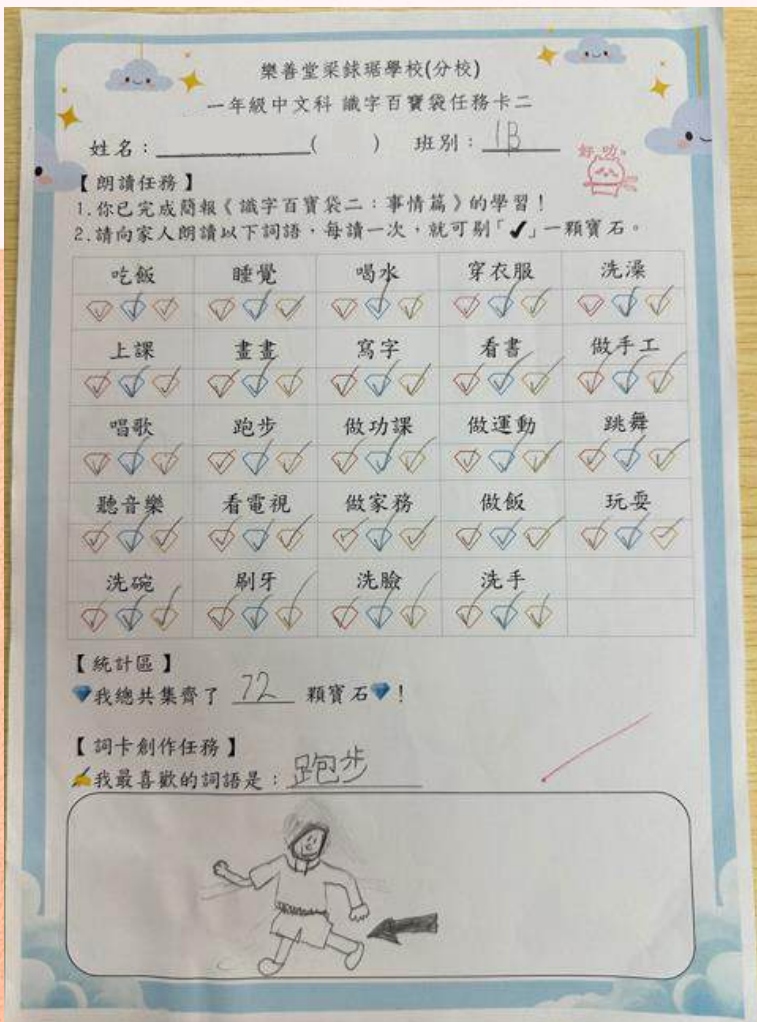 樂善堂梁銶琚學校(分校)
一年級中文科 識字百寶袋任務卡二
姓名：____________( ) 班別：1B
好叻。
【朗讀任務】
1.你已完成簡報《識字百寶袋二：事情篇》的學習！
2.請向家人朗讀以下詞語，每讀一次，就可剔「✔」一顆寶石。
吃飯 睡覺 喝水 穿衣服 洗澡
上課 畫畫 寫字 看書 做手工
唱歌 跑步 做功課 做運動 跳舞
聽音樂 看電視 做家務 做飯 玩耍
洗碗 刷牙 洗臉 洗手
【統計區】
💎我總共集齊了 72 顆寶石💎！
【詞卡創作任務】
✍我最喜歡的詞語是：跑步